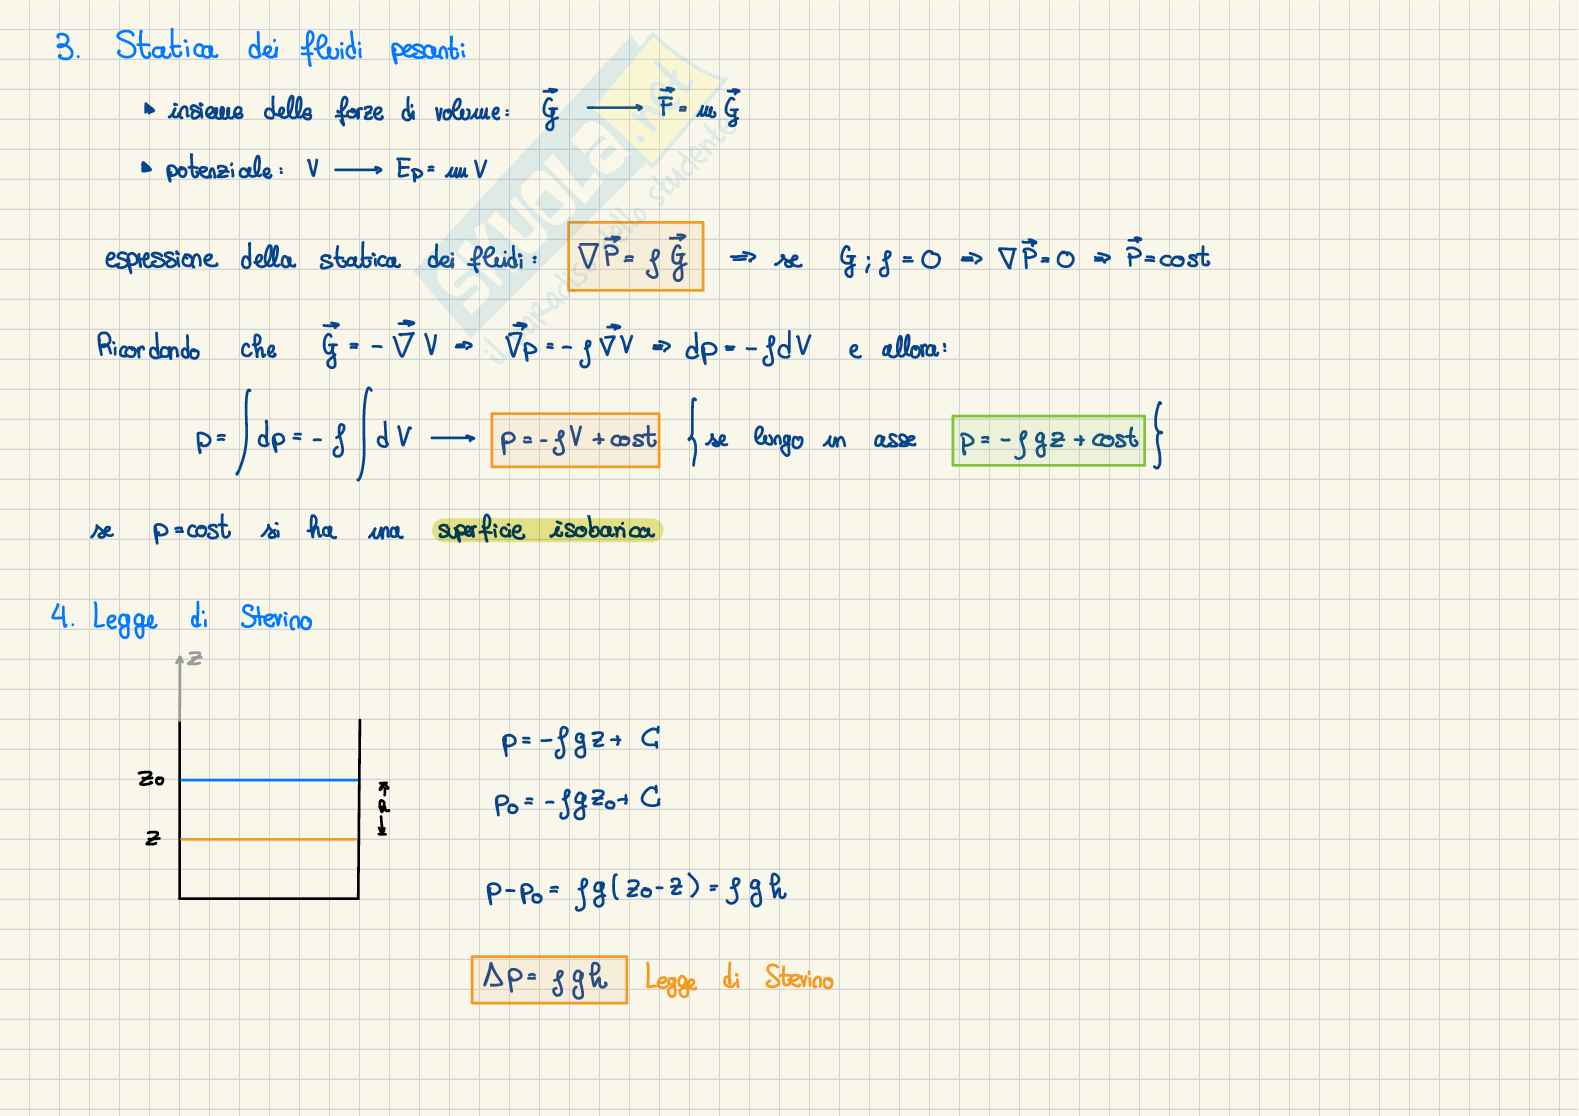 3. Statica dei fluidi pesanti
▸ insieme delle forze di volume: G⃗ ⟶ F⃗ = m G⃗
▸ potenziale: V ⟶ Ep = m V
espressione della statica dei fluidi: ∇P⃗ = ρ G⃗ ⇒ se G ; ρ = 0 ⇒ ∇P⃗ = 0 ⇒ P⃗ = cost
Ricordando che G⃗ = - ∇⃗ V ⇒ ∇⃗p = - ρ ∇⃗V ⇒ dp = - ρdV e allora:
p = ∫ dp = - ρ ∫ dV ⟶ p = - ρV + cost { se lungo un asse p = - ρgz + cost }
se p = cost si ha una superficie isobarica
4. Legge di Stevino
z
z₀
z
h
p = - ρgz + C
p₀ = - ρgz₀ + C
p - p₀ = ρg(z₀ - z) = ρgh
Δp = ρgh Legge di Stevino
SKUOLA.net
il paradiso dello studente